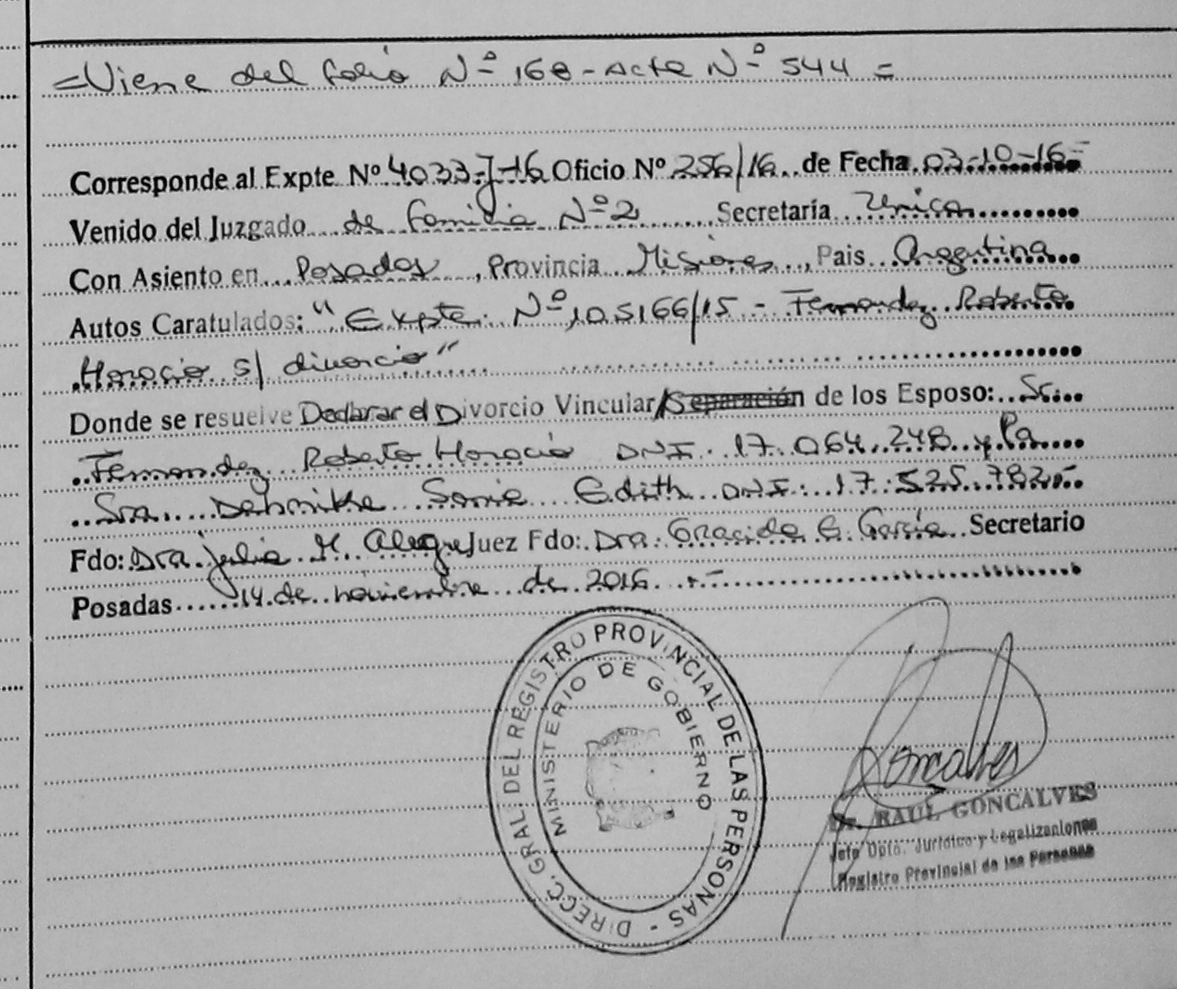 =Viene del folio Nº 168 - Acta Nº 544 =
Corresponde al Expte Nº 4033-J-16 Oficio Nº 256/16 de Fecha 03-10-16-
Venido del Juzgado de Familia Nº 2 Secretaría Unica
Con Asiento en Posadas, Provincia Misiones, Pais Argentina
Autos Caratulados: "Expte. Nº 105166/15 - Fernandez Roberto
Horacio s/ divorcio"
Donde se resuelve Declarar el Divorcio Vincular/Separación de los Esposo: Sr.
Fernandez Roberto Horacio DNI. 17.064.248 y la
Sra. Sonia Edith DNI: 17.525.782.-
Fdo: Dra. Julia M. Alegre Juez Fdo: Dra. Graciela G. García Secretario
Posadas 14 de noviembre de 2016 .-
DIRECC. GRAL. DEL REGISTRO PROVINCIAL DE LAS PERSONAS -
MINISTERIO DE GOBIERNO
Goncalves
Dr. RAUL GONCALVES
Jefe Dpto. Jurídico y Legalizaciones
Registro Provincial de las Personas